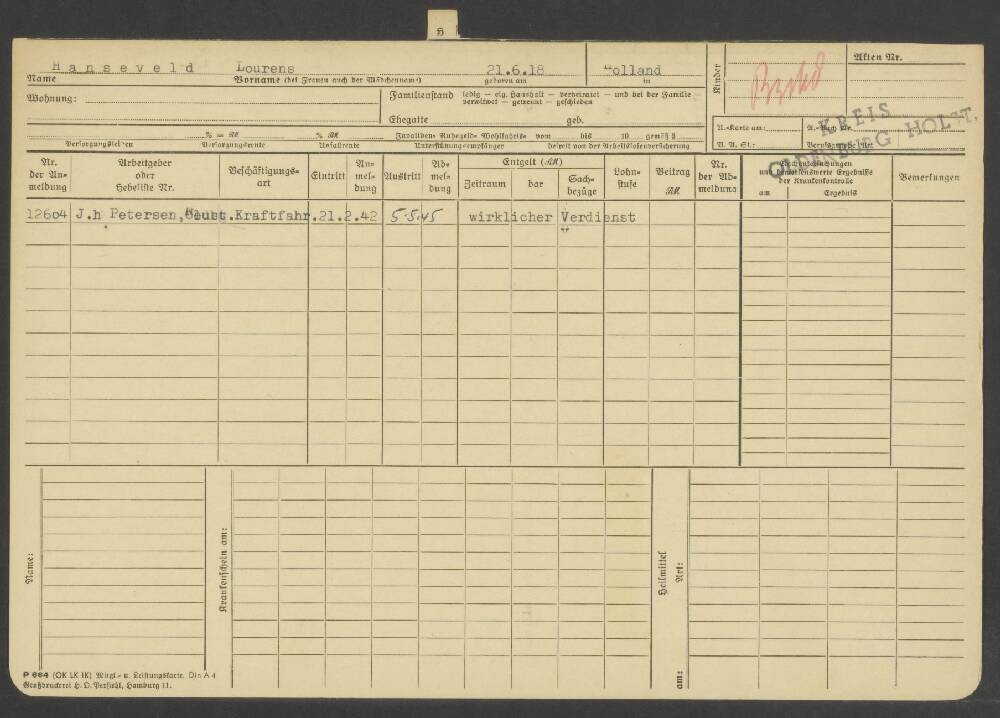 H
Hanseveld Lourens 21.6.18 Holland
Name Vorname (bei Frauen auch der Mädchenname) geboren am in
Kinder
Akten Nr.
Wohnung:
Familienstand ledig — eig. Haushalt — verheiratet — und bei der Familie —
verwitwet — getrennt — geschieden
Ehegatte geb.
KREIS
OLDENBURG HOLST.
A.-Karte am:
V. A. St.:
% = RM. % RM. Invaliden- Ruhegeld- Wohlfahrts- vom bis 19 gemäß §
Versorgungsleiden Versorgungsrente Unfallrente Unterstützungsempfänger befreit von der Arbeitslosenversicherung
Nr. der An-meldung
Arbeitgeber oder Hebeliste Nr.
Beschäftigungs-art
Eintritt
An-mel-dung
Austritt
Ab-mel-dung
Entgelt (RM)
Zeitraum bar Sach-bezüge
Lohn-stufe
Beitrag RM.
Nr. der Ab-meldung
und bemerkenswerte Ergebnisse
der Krankenkontrolle
am Ergebnis
Bemerkungen
12604 J.h Petersen, Kraftfahr. 21.2.42 5.5.45 wirklicher Verdienst
Name:
Krankenschein am:
Heilmittel
Art:
am:
P 664 (OK LK IK) Mitgl.- u. Leistungskarte. Din A 4
Großdruckerei H. O. Persiehl, Hamburg 11.